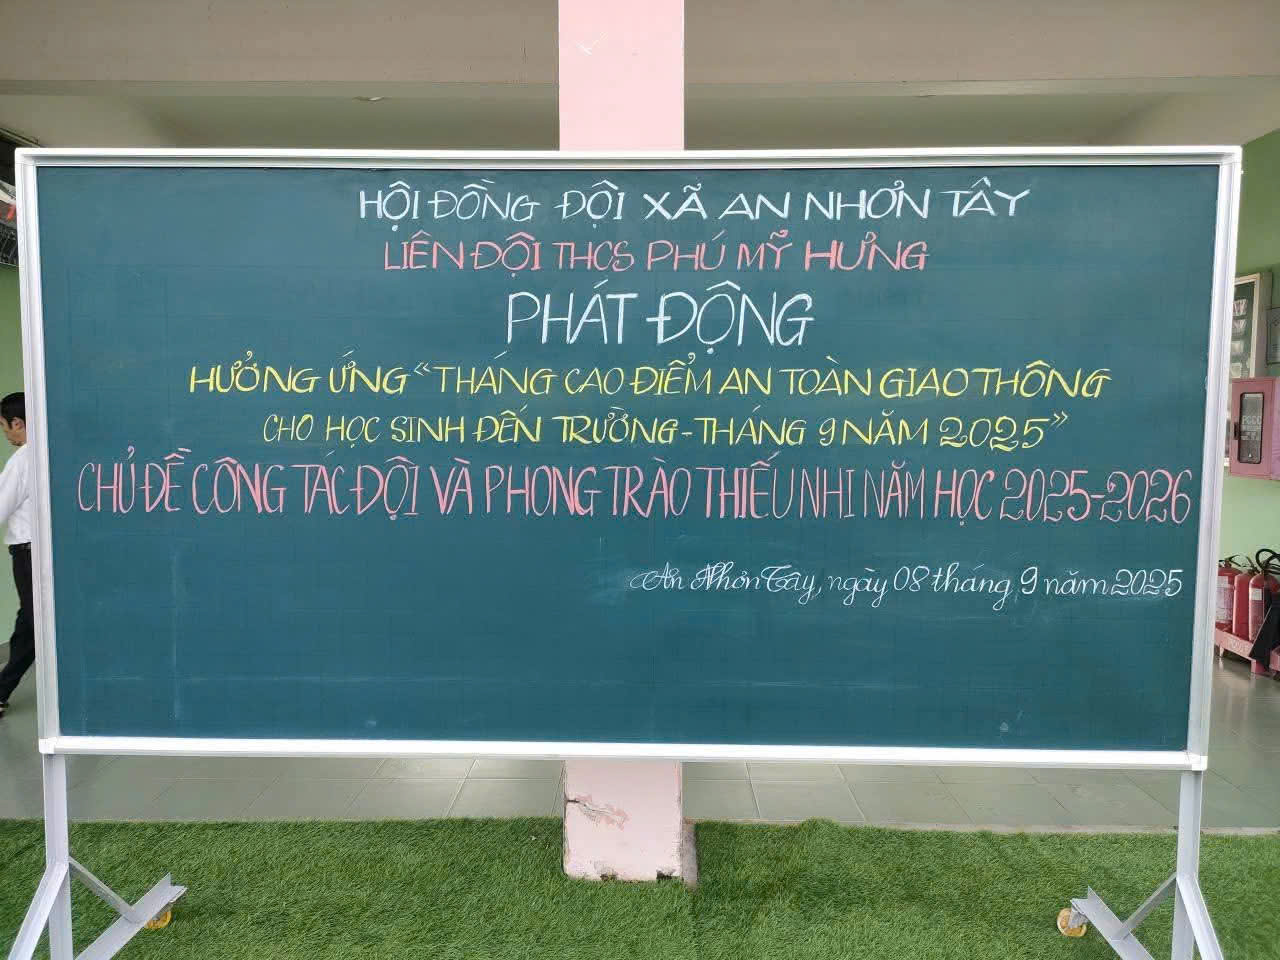 HỘI ĐỒNG ĐỘI XÃ AN NHƠN TÂY
LIÊN ĐỘI THCS PHÚ MỸ HƯNG
PHÁT ĐỘNG
HƯỞNG ỨNG "THÁNG CAO ĐIỂM AN TOÀN GIAO THÔNG
CHO HỌC SINH ĐẾN TRƯỜNG - THÁNG 9 NĂM 2025"
CHỦ ĐỀ CÔNG TÁC ĐỘI VÀ PHONG TRÀO THIẾU NHI NĂM HỌC 2025-2026
An Nhơn Tây, ngày 08 tháng 9 năm 2025
PCCC